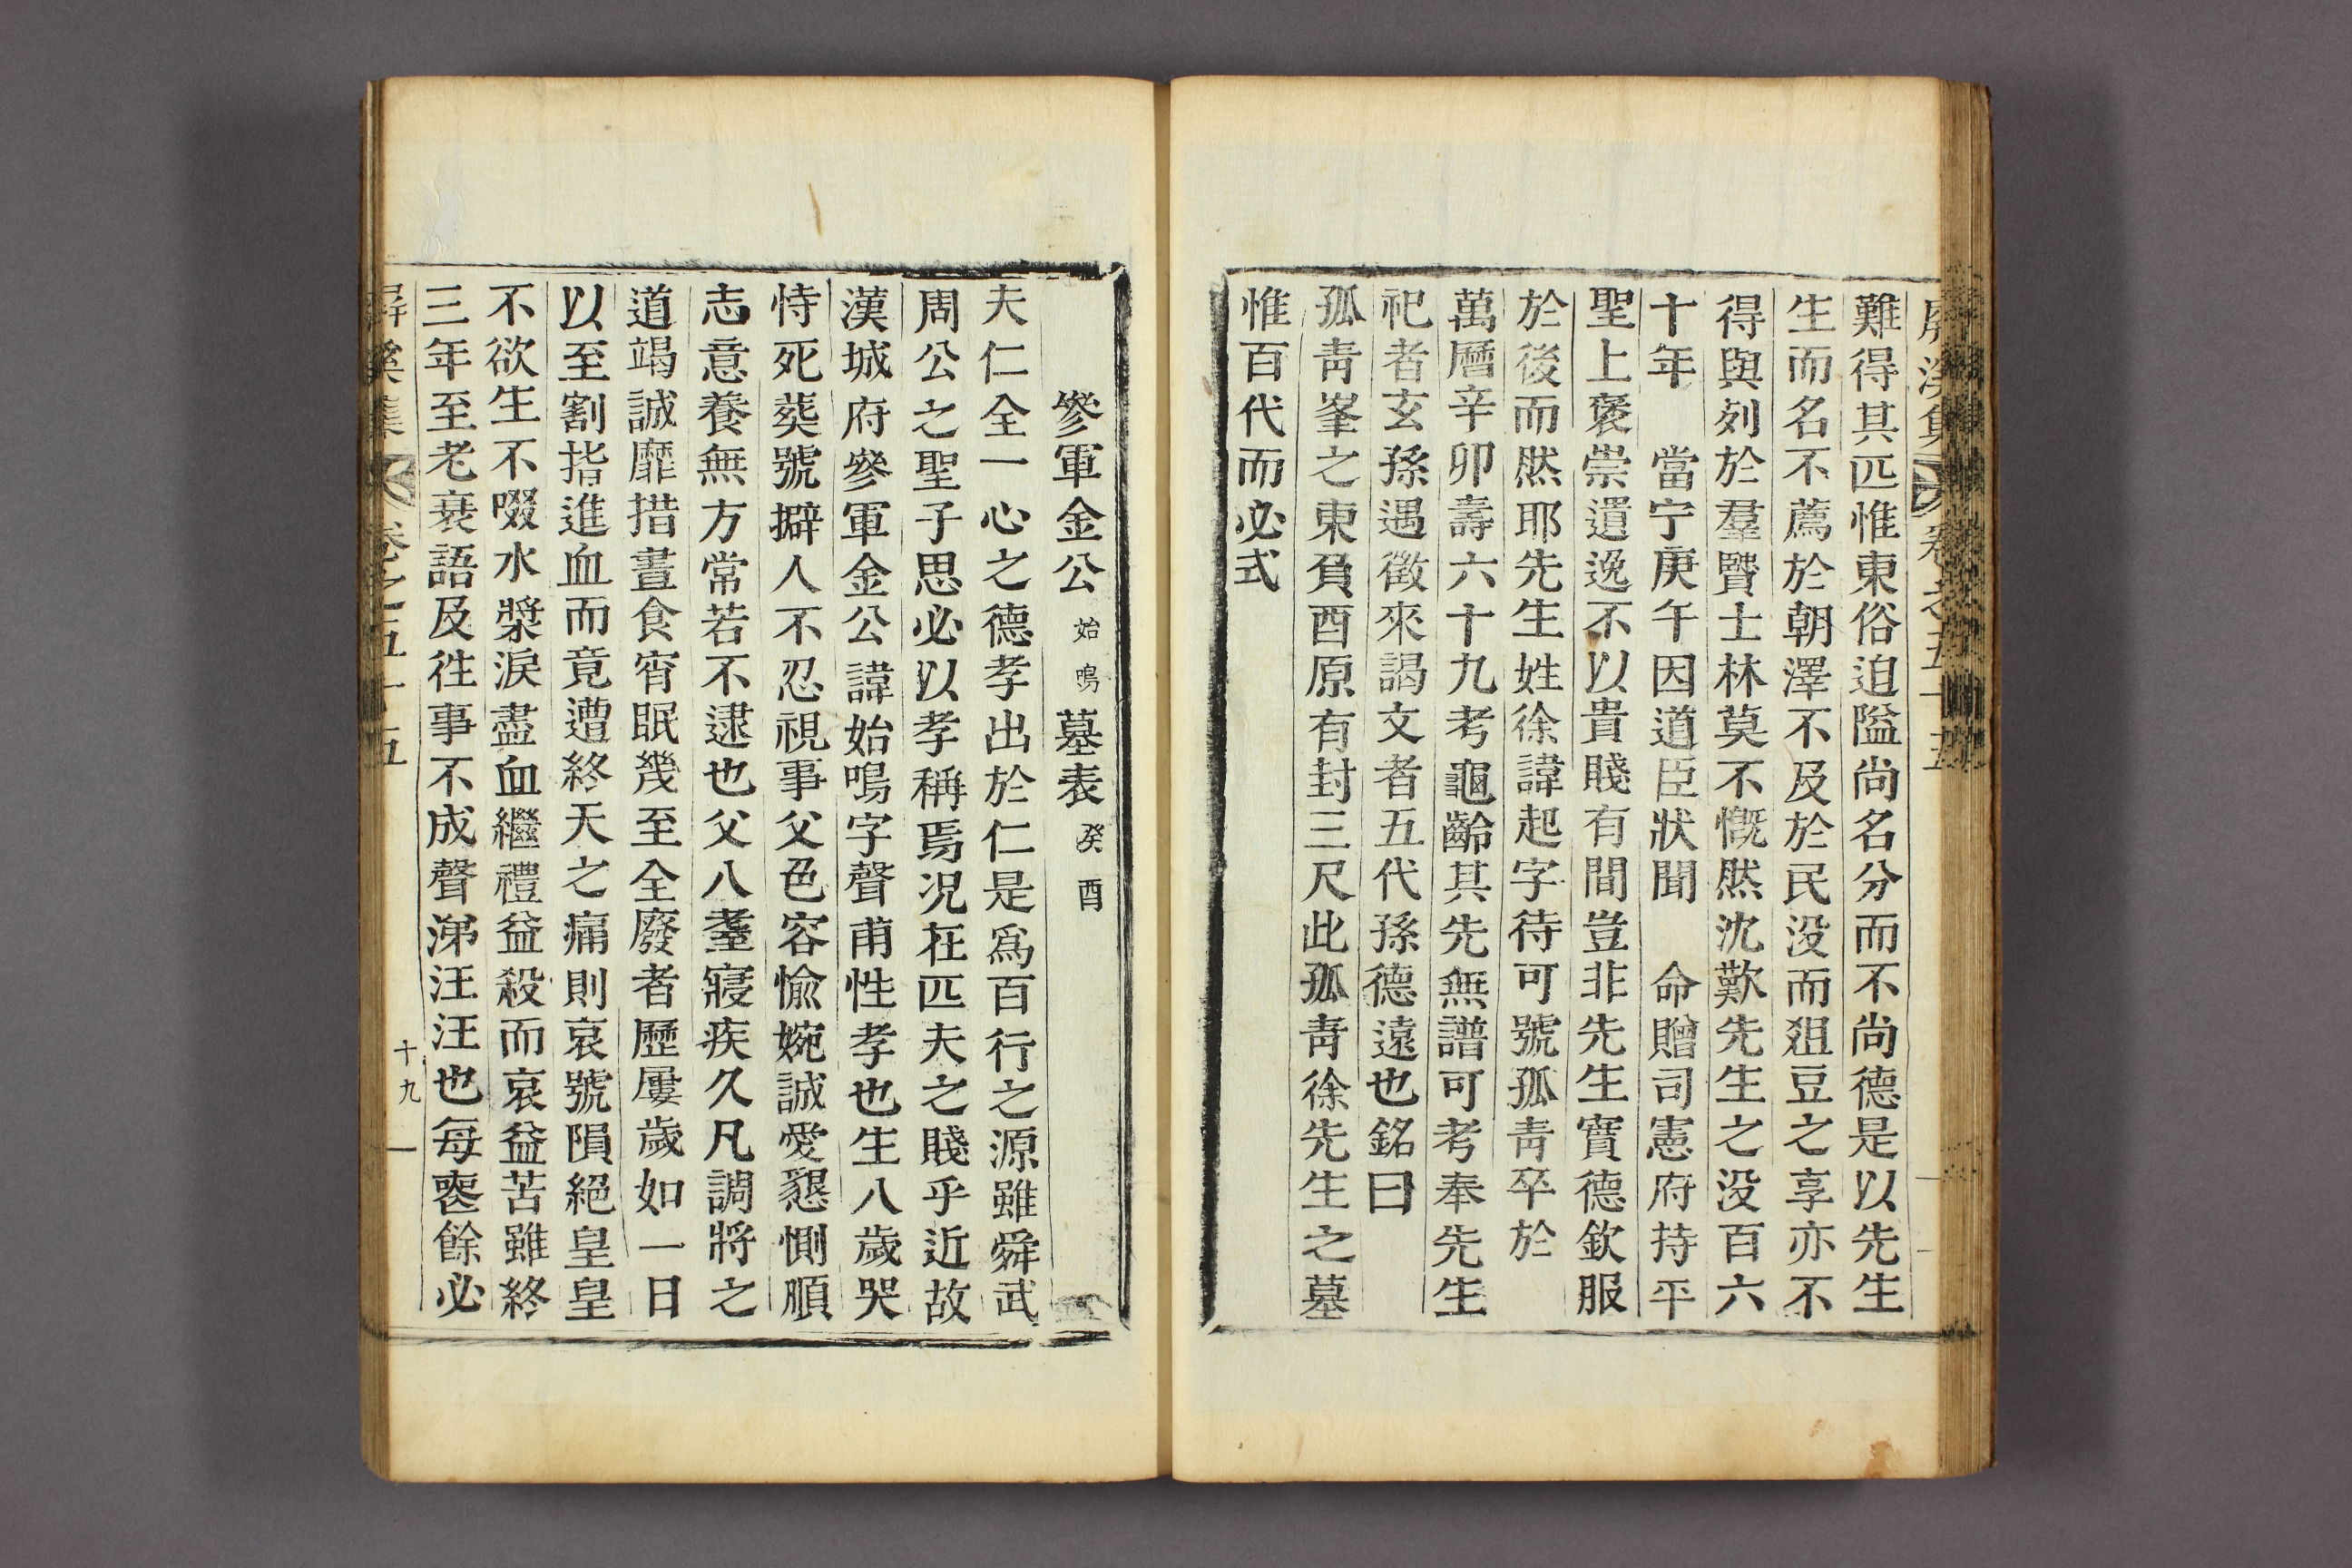 屛溪集 卷之五十五
難得其匹惟東俗迫隘尙名分而不尙德是以先生
生而名不薦於朝澤不及於民没而俎豆之享亦不
得與列於羣賢士林莫不慨然沈歎先生之没百六
十年 當宁庚午因道臣狀聞 命贈司憲府持平
聖上褒崇遺逸不以貴賤有間豈非先生實德欽服
於後而然耶先生姓徐諱起字待可號孤靑卒於
萬曆辛卯壽六十九考龜齡其先無譜可考奉先生
祀者玄孫遇徵來謁文者五代孫德遠也銘曰
孤靑峯之東負酉原有封三尺此孤靑徐先生之墓
惟百代而必式
參軍金公始鳴墓表癸酉
夫仁全一心之德孝出於仁是爲百行之源雖舜武
周公之聖子思必以孝稱焉况在匹夫之賤乎近故
漢城府參軍金公諱始鳴字聲甫性孝也生八歲哭
恃死葬號擗人不忍視事父色容愉婉誠愛懇惻順
志意養無方常若不逮也父八耋寢疾久凡調將之
道竭誠靡措晝食宵眠幾至全廢者歷屢歲如一日
以至割指進血而竟遭終天之痛則哀號隕絕皇皇
不欲生不啜水漿淚盡血繼禮益殺而哀益苦雖終
三年至老衰語及徃事不成聲涕汪汪也每喪餘必
屛溪集 卷之五十五 十九